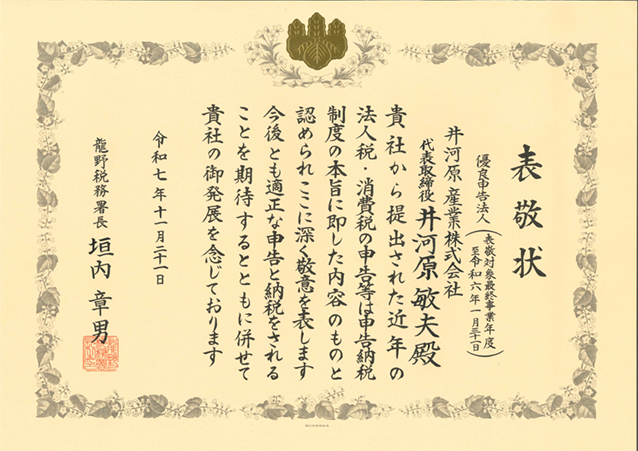 表敬状
優良申告法人
(表敬対象最終事業年度
至令和六年一月三十一日)
井河原産業株式会社
代表取締役 井河原敏夫殿
貴社から提出された近年の
法人税・消費税の申告等は申告納税
制度の本旨に即した内容のものと
認められここに深く敬意を表します
今後とも適正な申告と納税をされる
ことを期待するとともに併せて
貴社の御発展を念じております
令和七年十一月二十一日
龍野税務署長 垣内章男